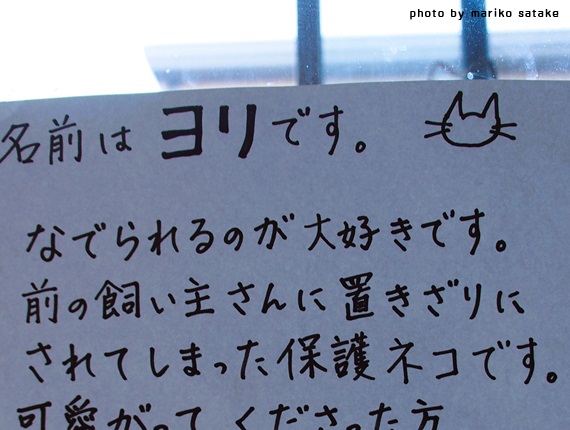 photo by mariko satake
名前は ヨリです。
なでられるのが大好きです。
前の飼い主さんに置きざりに
されてしまった保護ネコです。
可愛がってくださった方